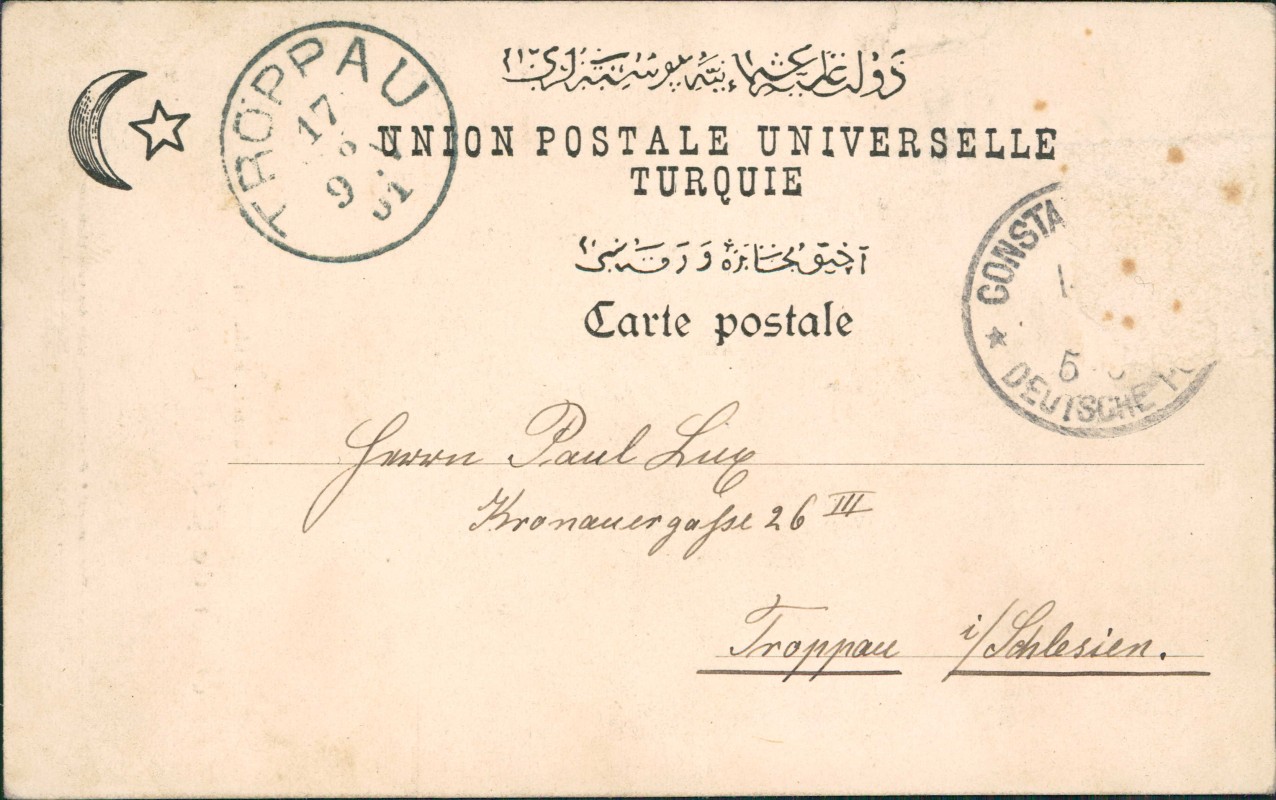 دولت علیهٔ عثمانیه پوسته لری
UNION POSTALE UNIVERSELLE
TURQUIE
Carte postale
TROPPAU
17
9
01
CONSTA
5
DEUTSCHE PO
Herrn Paul Lux
Kronauergasse 26 III
Troppau i/Schlesien.